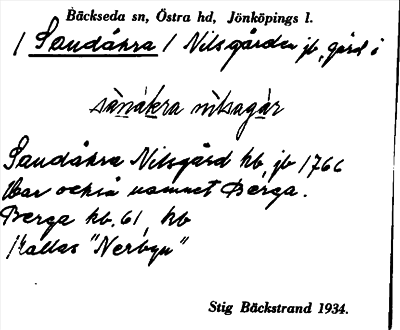 Bäckseda sn, Östra hd, Jönköpings l.
/ Sandåkra / Nilsgården jb, gård i
sànåkra nìlsagàr
Sandåkra Nilsgård hb, jb 1766
Har också namnet Berga.
Berga hb. 61, hb
Kallas "Nerbyn"
Stig Bäckstrand 1934.